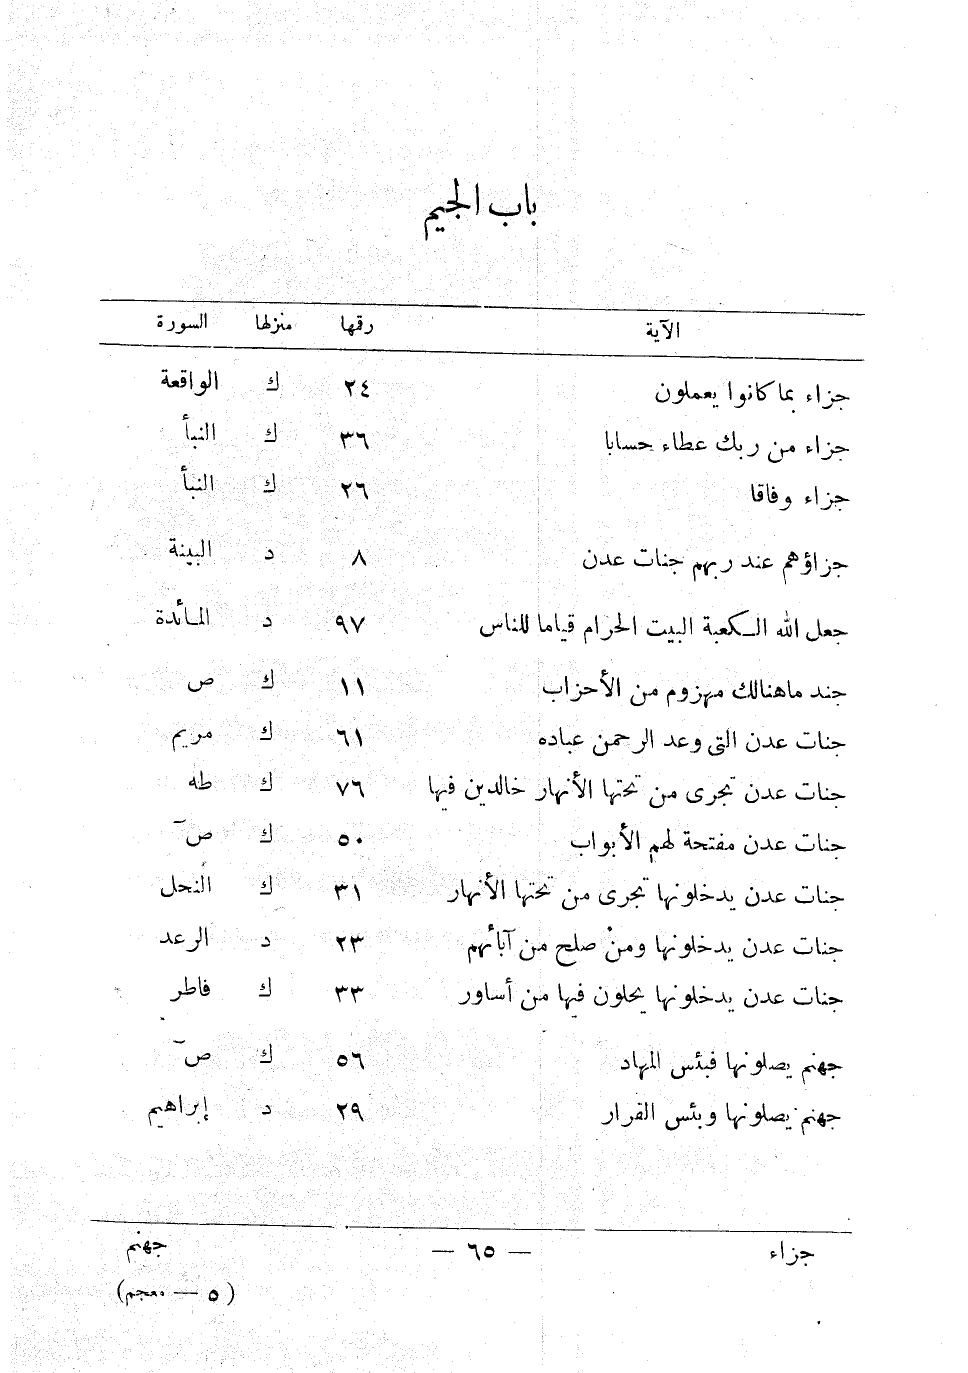 باب الجيم
الآية رقمها منزلها السورة
جزاء بما كانوا يعملون ٢٤ ك الواقعة
جزاء من ربك عطاء حسابا ٣٦ ك النبأ
جزاء وفاقا ٢٦ ك النبأ
جزاؤهم عند ربهم جنات عدن ٨ د البينة
جعل الله الـكعبة البيت الحرام قياما للناس ٩٧ د المـائدة
جند ماهنالك مهزوم من الأحزاب ١١ ك ص
جنات عدن التى وعد الرحمن عباده ٦١ ك مريم
جنات عدن تجرى من تحتها الأنهار خالدين فيها ٧٦ ك طه
جنات عدن مفتحة لهم الأبواب ٥٠ ك صٓ
جنات عدن يدخلونها تجرى من تحتها الأنهار ٣١ ك النحل
جنات عدن يدخلونها ومنْ صلح من آبائهم ٢٣ د الرعد
جنات عدن يدخلونها يحلون فيها من أساور ٣٣ ك فاطر
جهنم يصلونها فبئس المهاد ٥٦ ك صٓ
جهنم يصلونها وبئس القرار ٢٩ د إبراهيم
جزاء — ٦٥ — جهنم
(٥ — معجم)